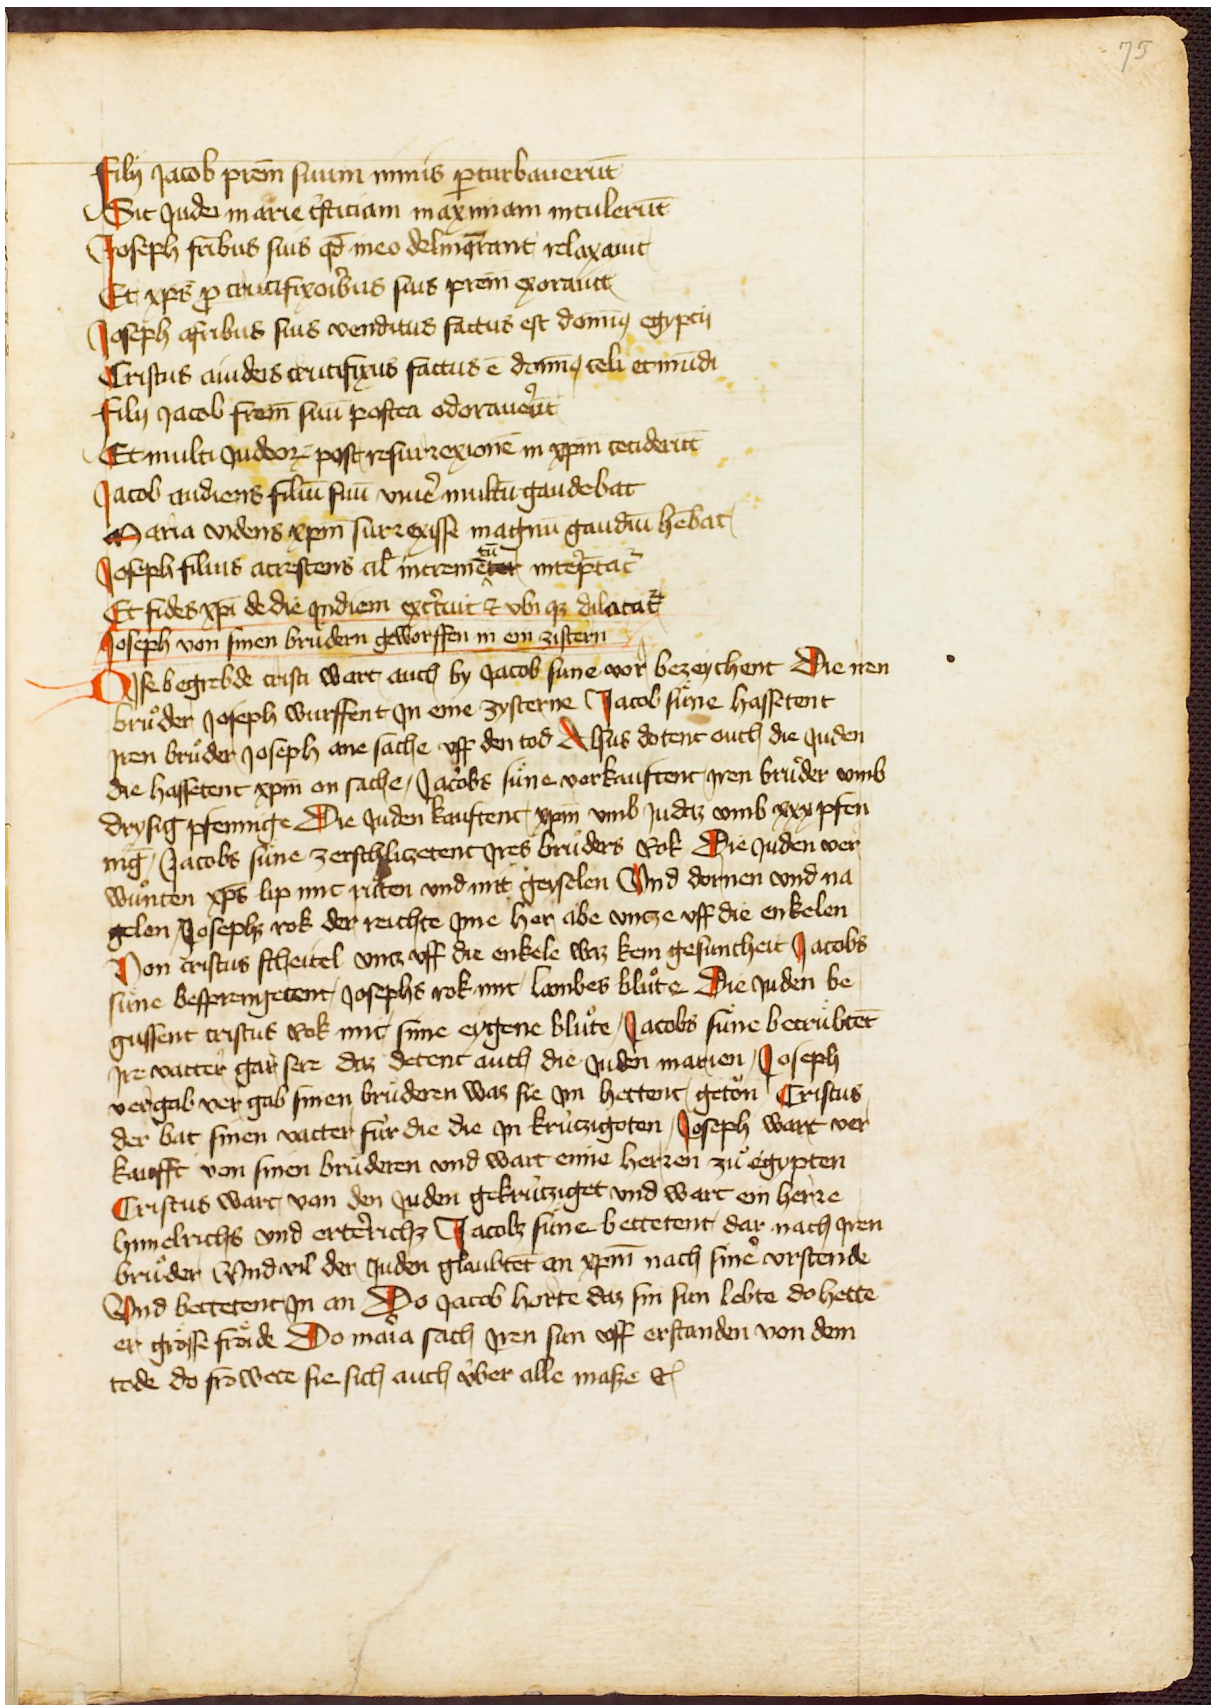 75
Filij Jacob prēm suum nimis ꝑturbauerūt
Sic Judei marie tͥsticiam maximam intulerūt
Joseph fr̄ibus suis qd̄ in eo delinq̄rant relaxauit
Et xp̄s ꝓ crucifixoribus suis prēm exorauit
Joseph a fr̄ibus suis venditus factus est domin9 egypti
Cristus a iudeis crucifixus factus ē domin9 celi et mūdi
Filij Jacob frēm suū postea odorauerūt
Et multi Judeoꝝ post resurrexionē in xp̄m crediderūt
Jacob audiens filiū suū viuer̄ multū gaudebat
Maria videns xp̄m surrexisse magnū gaudiū hēbat
Joseph filius accrescens ul̄ incremētū int̄pretat᷑
Et fides xp̄i de die Indiem excreuit ⁊ vbiqꝫ dilatat᷑
Joseph von sinen brůdern geworffen in ein zistern
Dise begrebde cristi wart auch by Jacob sune vor bezeychent Die iren
brůder Joseph wurffent Jn eine zysterne Jacob sůne hassetent
Jren brůder Joseph ane sache vff den tod Alsus dotent ouch die Juden
die hassetent xp̄m on sache / Jacobs sůne verkauftent Jren brůder vmb
drysig pfennige Die Juden kauftent xp̄m vmb Judaz vmb xxx pfen
nig / Jacobs sůne zerschlizetent Jres brůders Rok Die Juden ver
wůnten xp̄s lip mit růten vnd mit geyselen Vnd dornen vnd na
gelen / Josephz rok der reichte Jme her abe vntze vff die enkelen
Von cristus scheitel vntz vff die enkele waz kein gesuntheit Jacobs
sůne besprengetent Josephs rok mit lambes blůte Die Juden be
gussent cristus Rok mit sime eygene blůte / Jacobs sůne betrůbtēt
Jre vatter gar sere daz detent auch die Juden marien / Joseph
vergab ver gab sinen brůderen waz sie Jm hettent geton Cristus
der bat sinen vatter fůr die die Jn krůczigoten / Joseph wart ver
kaufft von sinen brůderen vnd wart eime herren zů egypten
Cristus wart von den Juden gekrůtziget vnd wart ein herre
himelrichs vnd erterichz Jacobz sůne bettetent dar nach Jren
brůder Vnd vil der Juden glaubtēt an xp̄m nach siner vrstende
Vnd bettetent Jn an Do Jacob horte daz sin sun lebte do hette
er grosse froide Do maria sach Jren sun vff erstanden von dem
tode do frowete sie sich auch v̊ber alle masze ⁊c